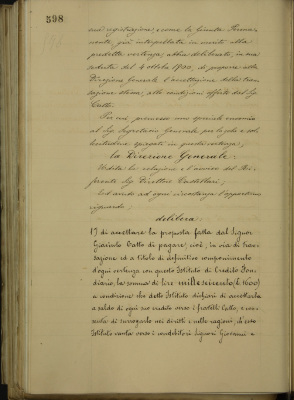 398
sua registrazione; come la Giunta Perma-
nente, già interpellata in merito alla
predetta vertenza, abbia deliberato, in sua
seduta del 4 ottobre 1900, di proporre alla
Direzione Generale l'accettazione della tran-
sazione stessa, alle condizioni offerte dal Sig.
Gatto.
Per cui promosse uno speciale encomio
al Sig. Segretario Generale per lo zelo e sol-
lecitudine spiegati in questa vertenza;
la Direzione Generale:
Udita la relazione e l'avviso del Re-
ferente Sig. Direttore
Ed avuto ad ogni circostanza l'opportuno
riguardo,
delibera:
1) di accettare la proposta fatta dal Signor
Gatto di pagare, cioè, in via di transa-
zione ed a titolo di definitivo componimento
d'ogni vertenza con questo Istituto di Credito Fon-
diario, la somma di lire milleseicento (£ 1600)
a condizione che detto Istituto dichiari di accettarla
a saldo di ogni suo credito verso i fratelli Gatto, e con-
senta di surrogarlo nei diritti e nelle ragioni, che esso
Istituto vanta verso i condebitori Signori Giovanni e